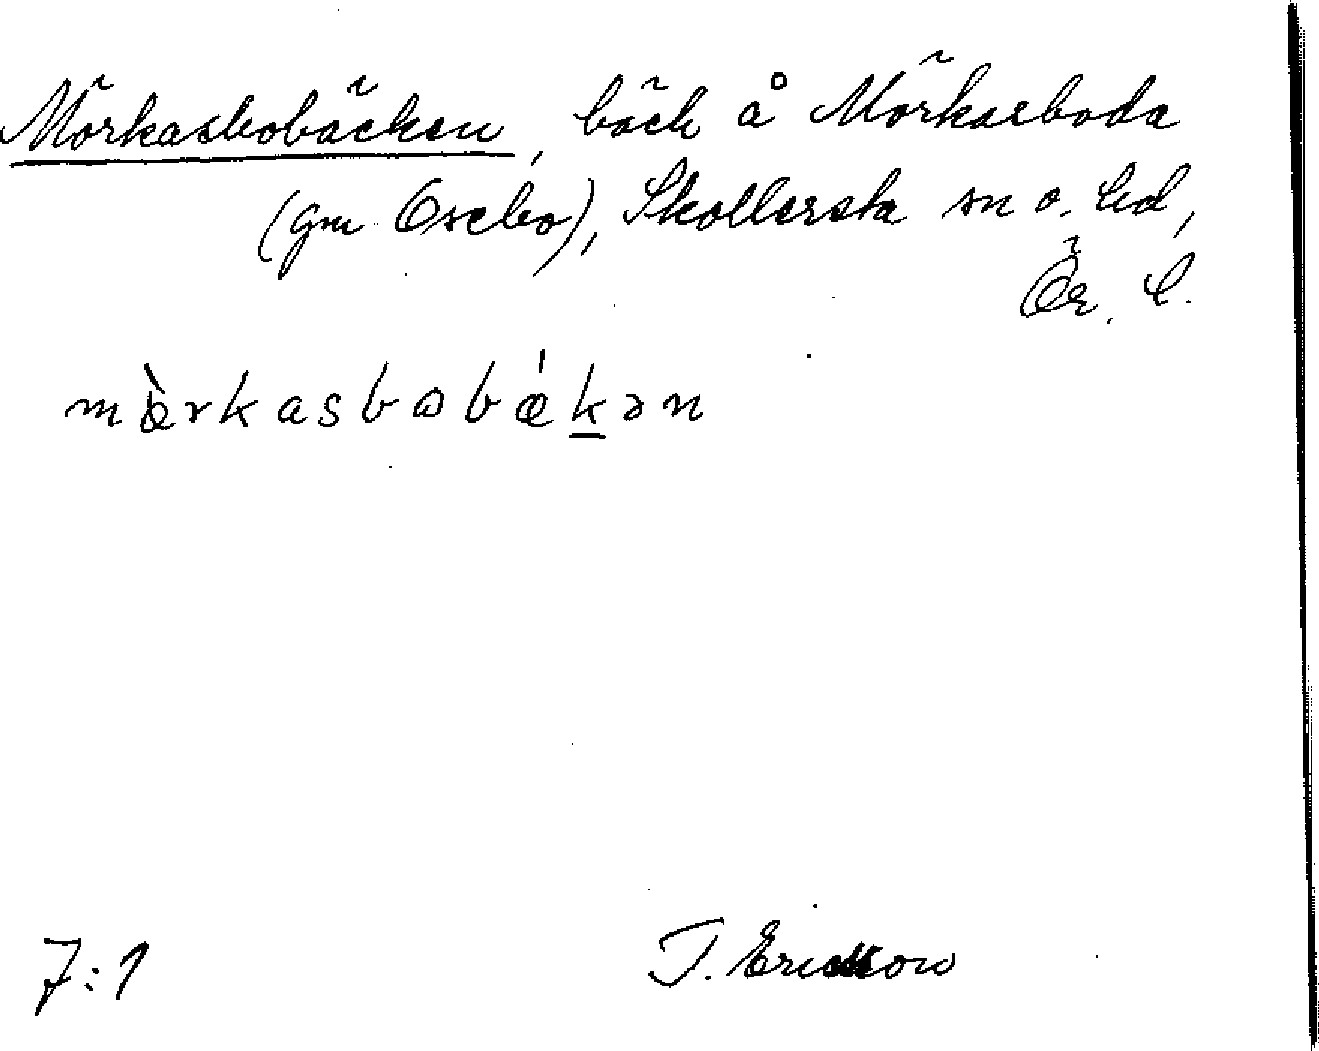 Mörkasbobäcken, bäck å Mörkasboda
(gm Osebo), Skollersta sn o. hd,
Ör. l.
mœ̀rkasbωbǽkən
7:1
T. Ericsson